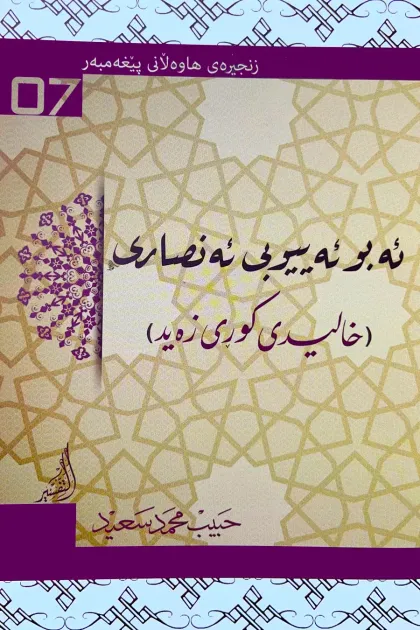 زنجیرەی هاوەڵانی پێغەمبەر
07
ئەبو ئەییوبی ئەنصاری
(خالیدی کوڕی زەید)
التفسير
حبیب محمد سعید